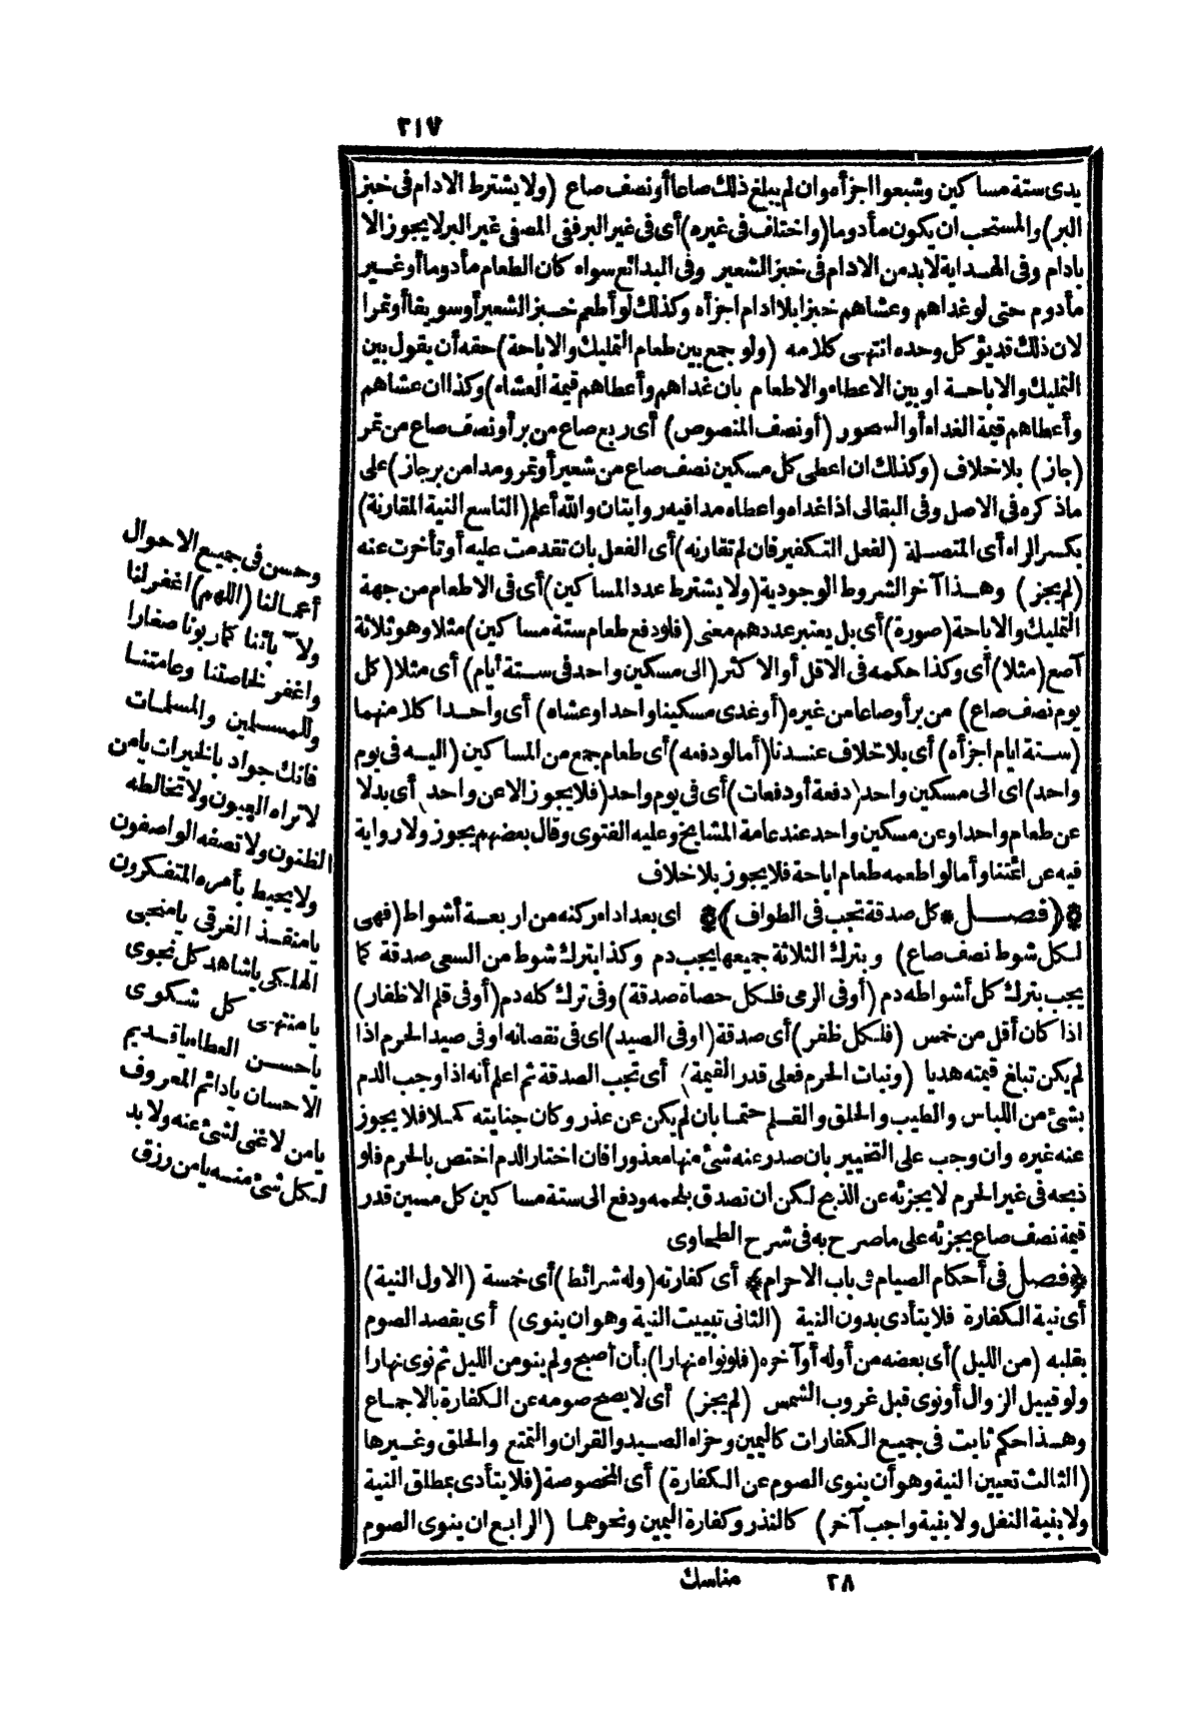 ٢١٧
يدى ستة مساكين وشبعوا اجزأه وان لم يبلغ ذلك صاعا أو نصف صاع (ولا يشترط الادام فى خبز
البر) والمستحب ان يكون مأدوما (واختلف فى غيره) أى فى غير البر ففى المصفى غير البر لا يجوز الا
بادام وفى الهداية لابد من الادام فى خبز الشعير وفى البدائع سواء كان الطعام مأدوما أو غير
مأدوم حتى لو غداهم وعشاهم خبزا بلا ادام اجزأه وكذلك لو أطعم خبز الشعير أو سويقا أو تمرا
لان ذلك قد يؤكل وحده انتهى كلامه (ولو جمع بين طعام التمليك والاباحة) حقه أن يقول بين
التمليك والاباحة او بين الاعطاء والاطعام بان غداهم وأعطاهم قيمة العشاء) وكذا ان عشاهم
وأعطاهم قيمة الغداء أو السحور (أو نصف المنصوص) أى ربع صاع من بر أو نصف صاع من تمر
(جاز) بلا خلاف (وكذلك ان اعطى كل مسكين نصف صاع من شعير أو تمر ومدا من بر جاز) على
ماذكره فى الاصل وفى البقالى اذا غداه واعطاه مدا فيه روايتان والله أعلم (التاسع النية المقارنة)
بكسر الراء أى المتصلة (لفعل التكفير فان لم تقارنه) أى الفعل بان تقدمت عليه أو تأخرت عنه
(لم يجز) وهذا آخر الشروط الوجودية (ولا يشترط عدد المساكين) أى فى الاطعام من جهة
التمليك والاباحة (صورة) أى بل يعتبر عددهم معنى (فلو دفع طعام ستة مساكين) مثلا وهو ثلاثة
آصع (مثلا) أى وكذا حكمه فى الاقل أو الاكثر (الى مسكين واحد فى ستة أيام) أى مثلا (كل
يوم نصف صاع) من بر أو صاعا من غيره (أو غدى مسكينا واحدا وعشاه) أى واحدا كلا منهما
(ستة ايام اجزأه) أى بلا خلاف عندنا (أما لو دفعه) أى طعام جمع من المساكين (اليه فى يوم
واحد) اى الى مسكين واحد (دفعة أو دفعات) أى فى يوم واحد (فلا يجوز الا عن واحد) أى بدلا
عن طعام واحد او عن مسكين واحد عند عامة المشايخ وعليه الفتوى وقال بعضهم يجوز ولا رواية
فيه عن ائمتنا وأما لو اطعمه طعام اباحة فلا يجوز بلا خلاف
﴿(فصل * كل صدقة تجب فى الطواف)﴾ اى بعد اداء ركنه من اربعة أشواط (فهى
لكل شوط نصف صاع) وبترك الثلاثة جميعها يجب دم وكذا بترك شوط من السعى صدقة كما
يجب بترك كل أشواطه دم (أو فى الرمى فلكل حصاة صدقة) وفى ترك كله دم (أو فى قلم الاظفار)
اذا كان أقل من خمس (فلكل ظفر) أى صدقة (اوفى الصيد) اى فى نقصانه او فى صيد الحرم اذا
لم يكن تبلغ قيمته هديا (ونبات الحرم فعلى قدر القيمة) أى تجب الصدقة ثم اعلم أنه اذا وجب الدم
بشئ من اللباس والطيب والحلق والقلم حتما بان لم يكن عن عذر وكان جنايته كملا فلا يجوز
عنه غيره وان وجب على التخيير بان صدر عنه شئ منها معذورا فان اختار الدم اختص بالحرم فلو
ذبحه فى غير الحرم لا يجزئه عن الذبح لكن ان تصدق بلحمه ودفع الى ستة مساكين كل مسين قدر
قيمة نصف صاع يجزئه على ما صرح به فى شرح الطحاوى
﴿فصل فى أحكام الصيام فى باب الاحرام﴾ أى كفارته (وله شرائط) أى خمسة (الاول النية)
أى نية الكفارة فلا يتأدى بدون النية (الثانى تبييت النية وهو ان ينوى) أى يقصد الصوم
بقلبه (من الليل) أى بعضه من أوله أو آخره (فلو نواه نهارا) بأن أصبح ولم ينو من الليل ثم نوى نهارا
ولو قبيل الزوال أو نوى قبل غروب الشمس (لم يجز) أى لا يصح صومه عن الكفارة بالاجماع
وهذا حكم ثابت فى جميع الكفارات كاليمين وجزاء الصيد والقران والتمتع والحلق وغيرها
(الثالث تعيين النية وهو أن ينوى الصوم عن الكفارة) أى المخصوصة (فلا يتأدى بمطلق النية
ولا بنية النفل ولا بنية واجب آخر) كالنذر وكفارة اليمين ونحوهما (الرابع ان ينوى الصوم
وحسن فى جميع الاحوال
أعمالنا (اللهم) اغفر لنا
ولآبائنا كما ربونا صغارا
واغفر لخاصتنا وعامتنا
وللمسلمين والمسلمات
فانك جواد بالخيرات يامن
لا تراه العيون ولا تخالطه
الظنون ولا تصفه الواصفون
ولا يحيط بأمره المتفكرون
يا منقذ الغرقى يا منجى
الهلكى يا شاهد كل نجوى
يا منتهى كل شكوى
يا حسن العطاء يا قديم
الاحسان يا دائم المعروف
يا من لا غنى لشئ عنه ولا بد
لكل شئ منه يا من رزق
٢٨ مناسك